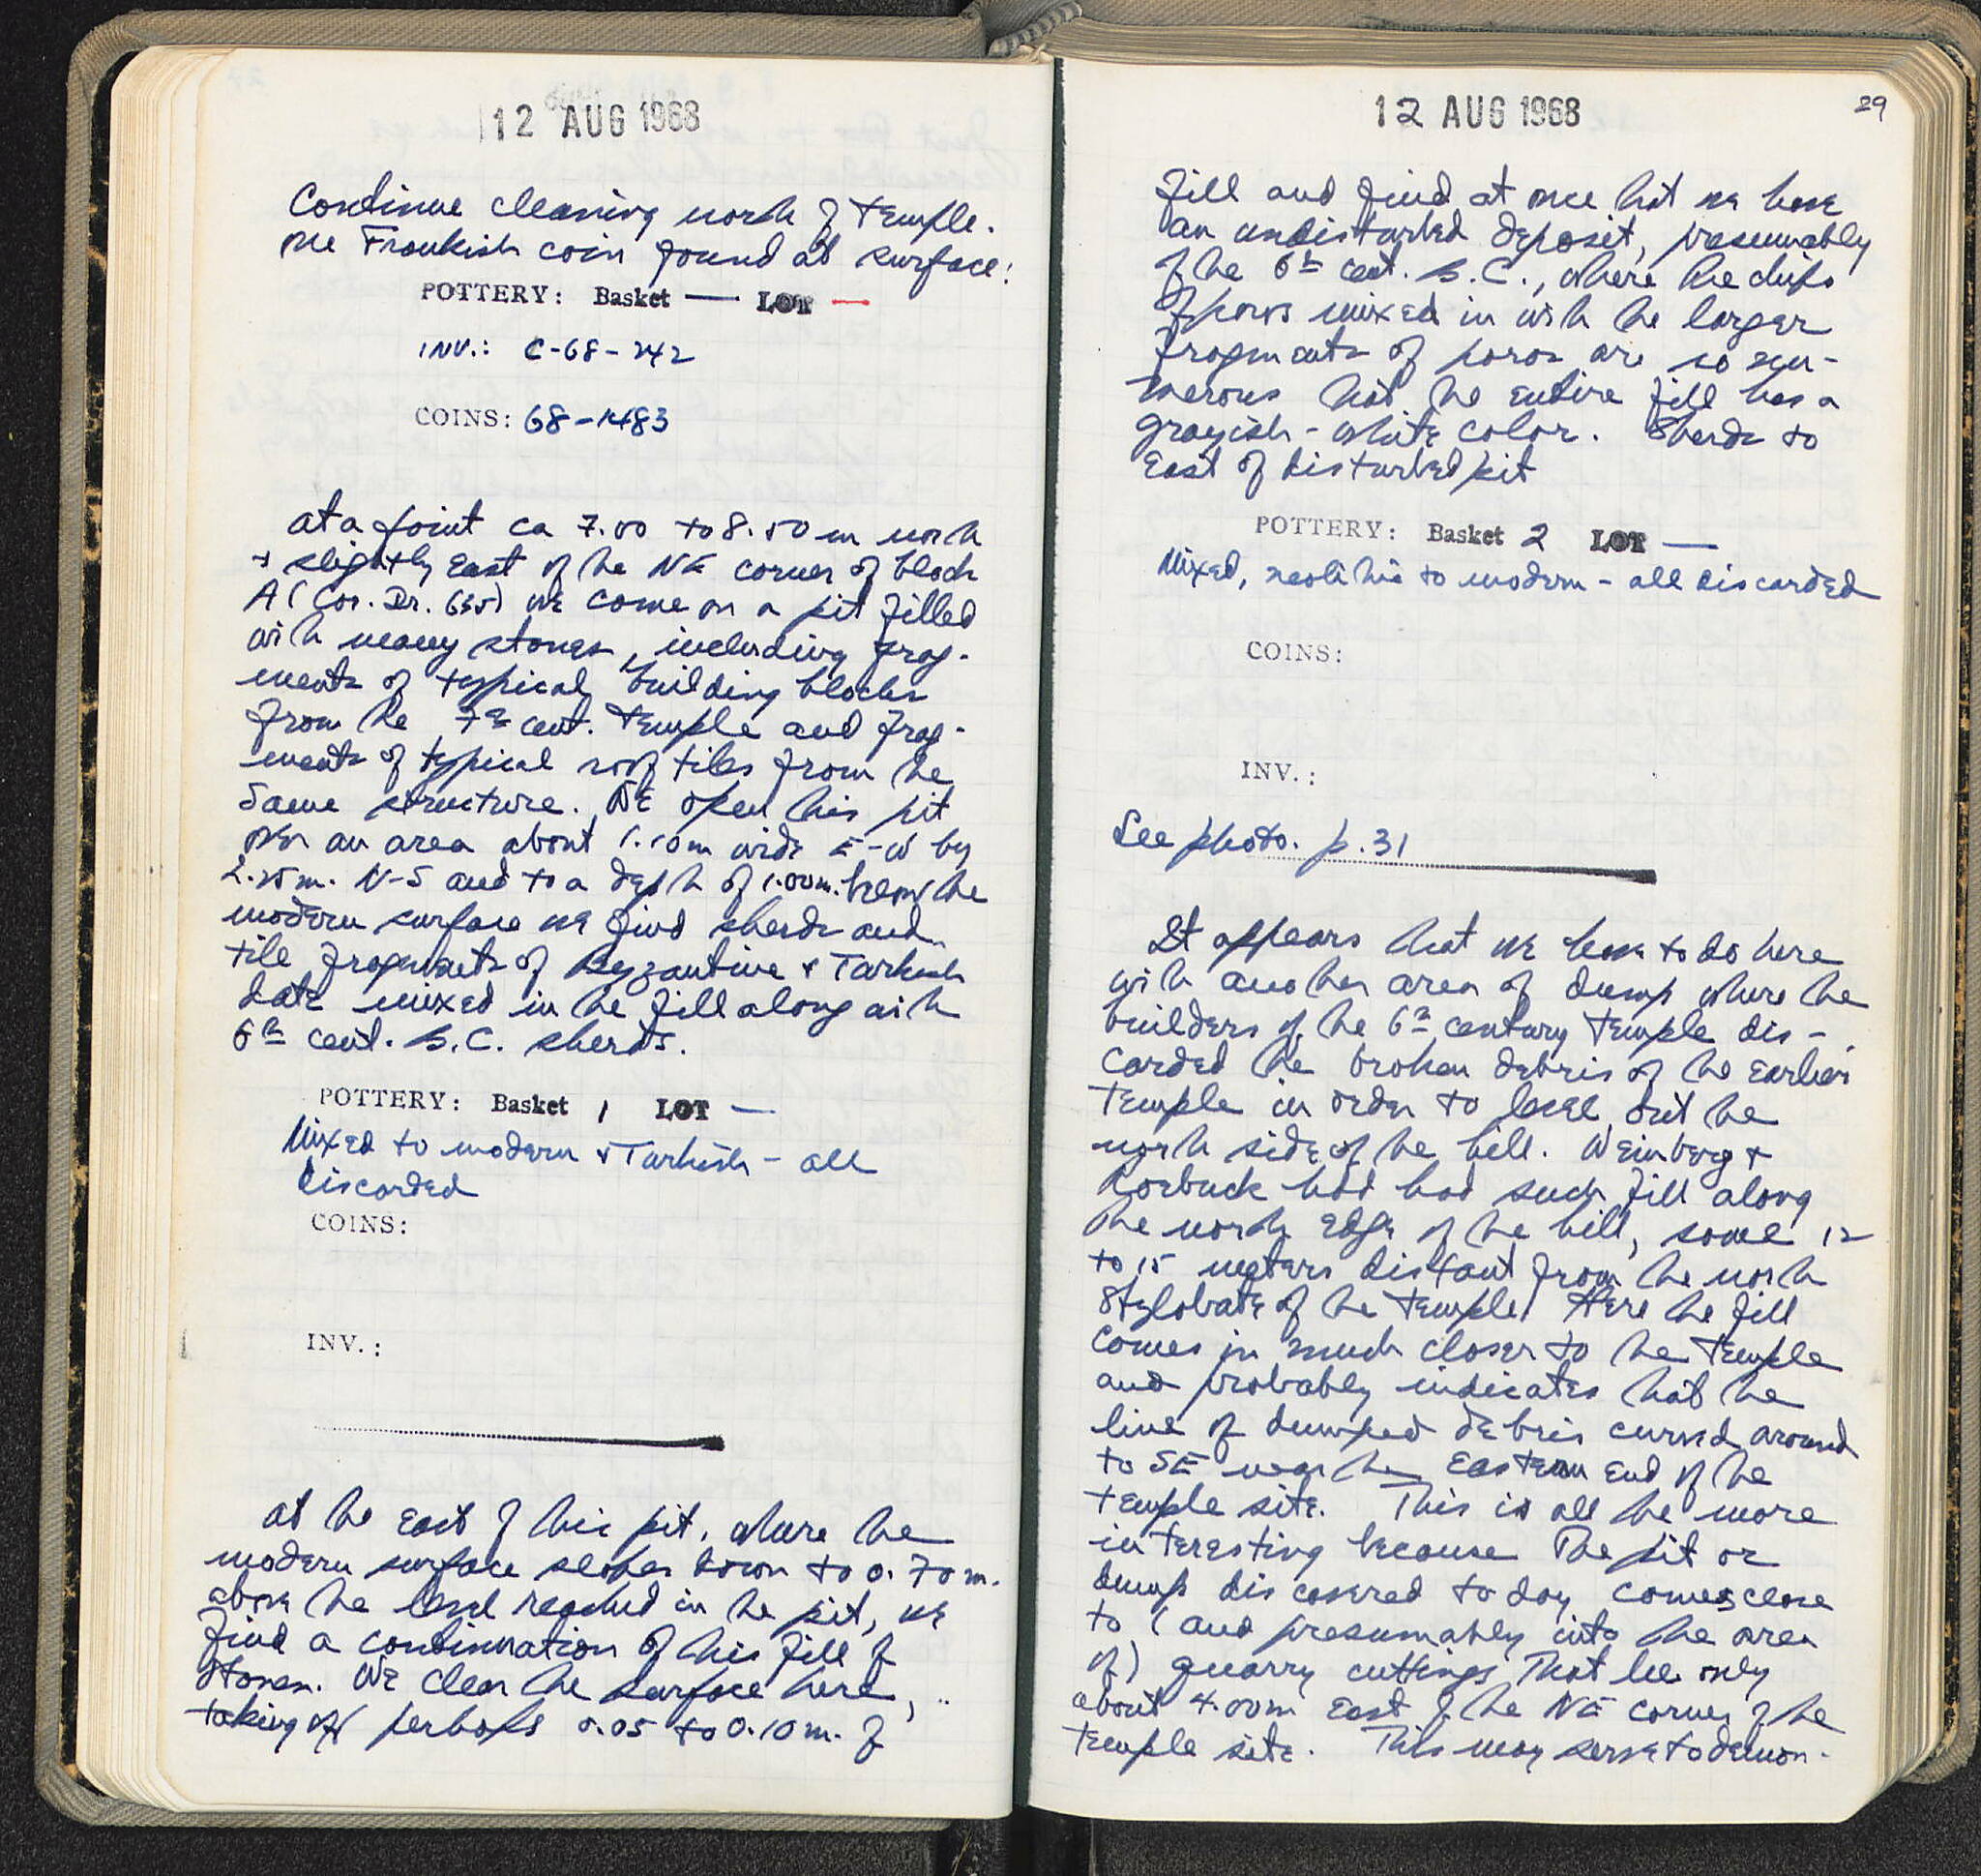 12 AUG 1968
Continue cleaning north of temple.
One Frankish coin found at surface:
POTTERY: Basket — LOT —
INV.: C-68-242
COINS: 68-1483
at a point ca 7.00 to 8.50 m north
+ slightly East of the NE corner of block
A (Cor. Dr. 685) we come on a pit filled
with many stones, including frag-
ments of typical building blocks
from the 7th cent. temple and frag-
ments of typical roof tiles from the
same structure. We open this pit
over an area about 1.10m wide E-W by
2.25m. N-S and to a depth of 1.00m. below the
modern surface we find sherds and
tile fragments of Byzantine & Turkish
date mixed in the fill along with
6th cent. B.C. sherds.
POTTERY: Basket 1 LOT —
Mixed to modern & Turkish - all
discarded
COINS:
INV.:
at the East of this pit, where the
modern surface slopes down to 0.70 m.
above the level reached in the pit, we
find a continuation of this fill of
stones. We clear the surface here,
taking off perhaps 0.05 to 0.10 m. of
12 AUG 1968
29
fill and find at once that we have
an undisturbed deposit, presumably
of the 6th cent. B.C., where the chips
of poros mixed in with the larger
fragments of poros are so nu-
merous that the entire fill has a
grayish-white color. Sherds to
East of disturbed pit
POTTERY: Basket 2 LOT —
Mixed, neolithic to modern - all discarded
COINS:
INV.:
See photo. p. 31
It appears that we have to do here
with another area of dump where the
builders of the 6th century temple dis-
carded the broken debris of the earlier
temple in order to level out the
north side of the hill. Weinberg &
Roebuck had had such fill along
the north edge of the hill, some 12
to 15 meters distant from the north
stylobate of the temple. Here the fill
comes in much closer to the temple
and probably indicates that the
line of dumped debris curved around
to SE near the Eastern end of the
temple site. This is all the more
interesting because the pit or
dump discovered today comes close
to (and presumably into the area
of) quarry cuttings that lie only
about 4.00m East of the NE corner of the
temple site. This may serve to demon-